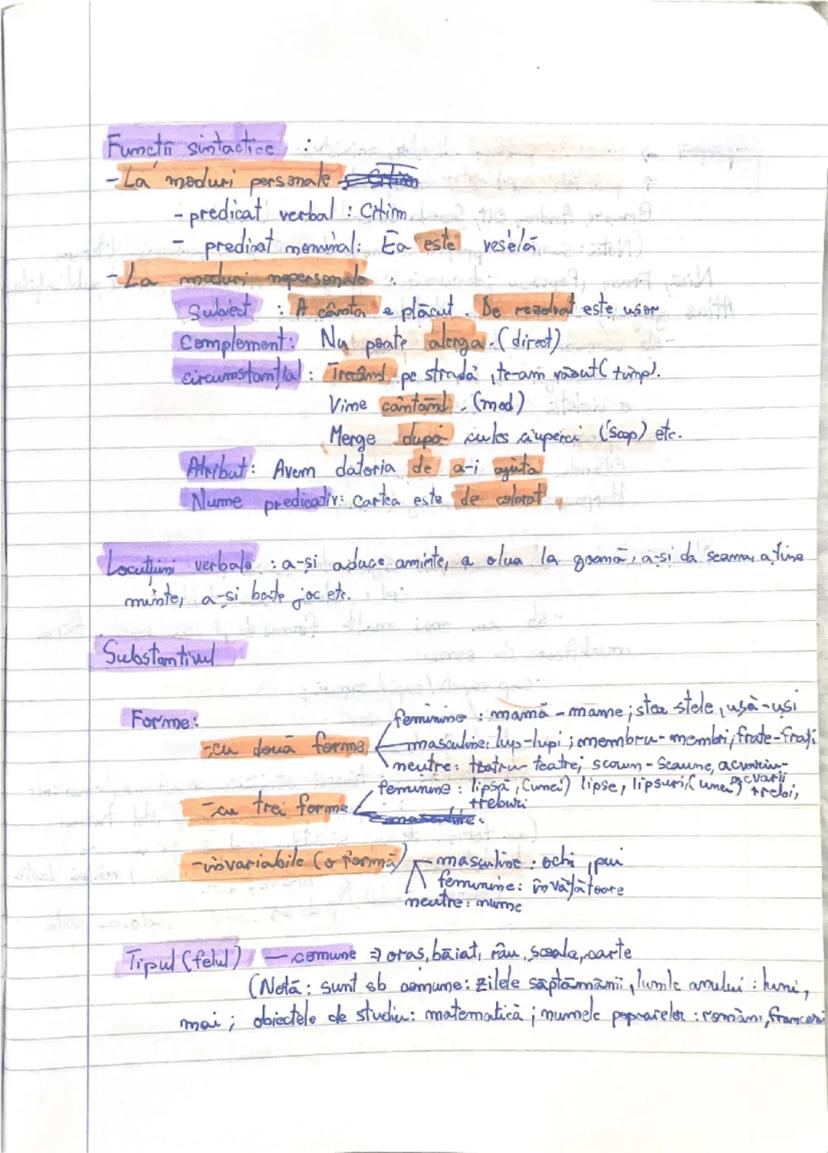 Functii sintactice :
-La moduri personale
-predicat verbal : Citim
- predicat nominal: Ea este veselă
-La moduri nepersonale :
Subiect : A cânta e plăcut. De rezolvat este usor
Complement: Nu poate alerga. (direct)
circumstanțial : Trecând pe stradă, te-am văzut (timp).
Vine cântând. (mod)
Merge după cules ciuperci (scop) etc.
Atribut: Avem datoria de a-i ajuta
Nume predicativ: cartea este de colorat.
Locuțiuni verbale : a-și aduce aminte, a o lua la goană, a-și da seama, a ține
minte, a-și bate joc etc.
Substantivul
Forme:
feminine : mamă - mame; stea-stele, ușă-uși
-cu două forme masculine: lup-lupi; membru-membri, frate-frați
neutre: teatru-teatre; scaun-scaune, acvariu-
acvarii
feminine: lipsă, (unei) lipse, lipsuri, (unei) trebi,
-cu trei forme treburi
-invariabile (o formă) masculine: ochi, pui
feminine: învățătoare
neutre: nume
Tipul (felul) - comune => oraș, băiat, râu, școala, carte
(Notă: sunt sb comune: zilele săptămânii, lunile anului : luni,
mai; obiectele de studiu: matematică; numele popoarelor: români, francezi